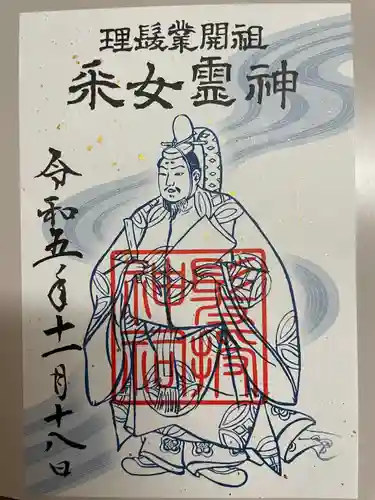 理髪業開祖
采女霊神
令和五年十一月十八日
御髪
神社